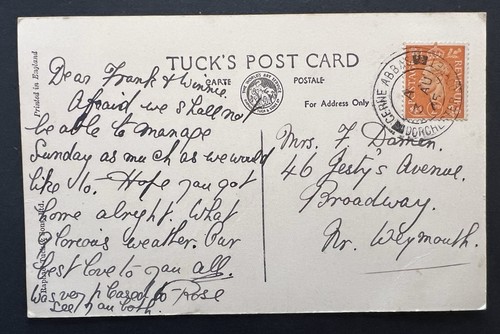 TUCK'S POST CARD
CARTE POSTALE
For Address Only
Printed in England
Raphael Tuck & Sons, Ltd.
CERNE ABBAS
DORCHE
Dear Frank & Winnie.
Afraid we shall not
be able to manage
Sunday as much as we would
like to. Hope you got
home alright. What
glorious weather. Our
best love to you all.
Was very pleased to Rose
see you both.
Mrs. F. Damen.
46 Jesty's Avenue.
Broadway.
Nr. Weymouth.